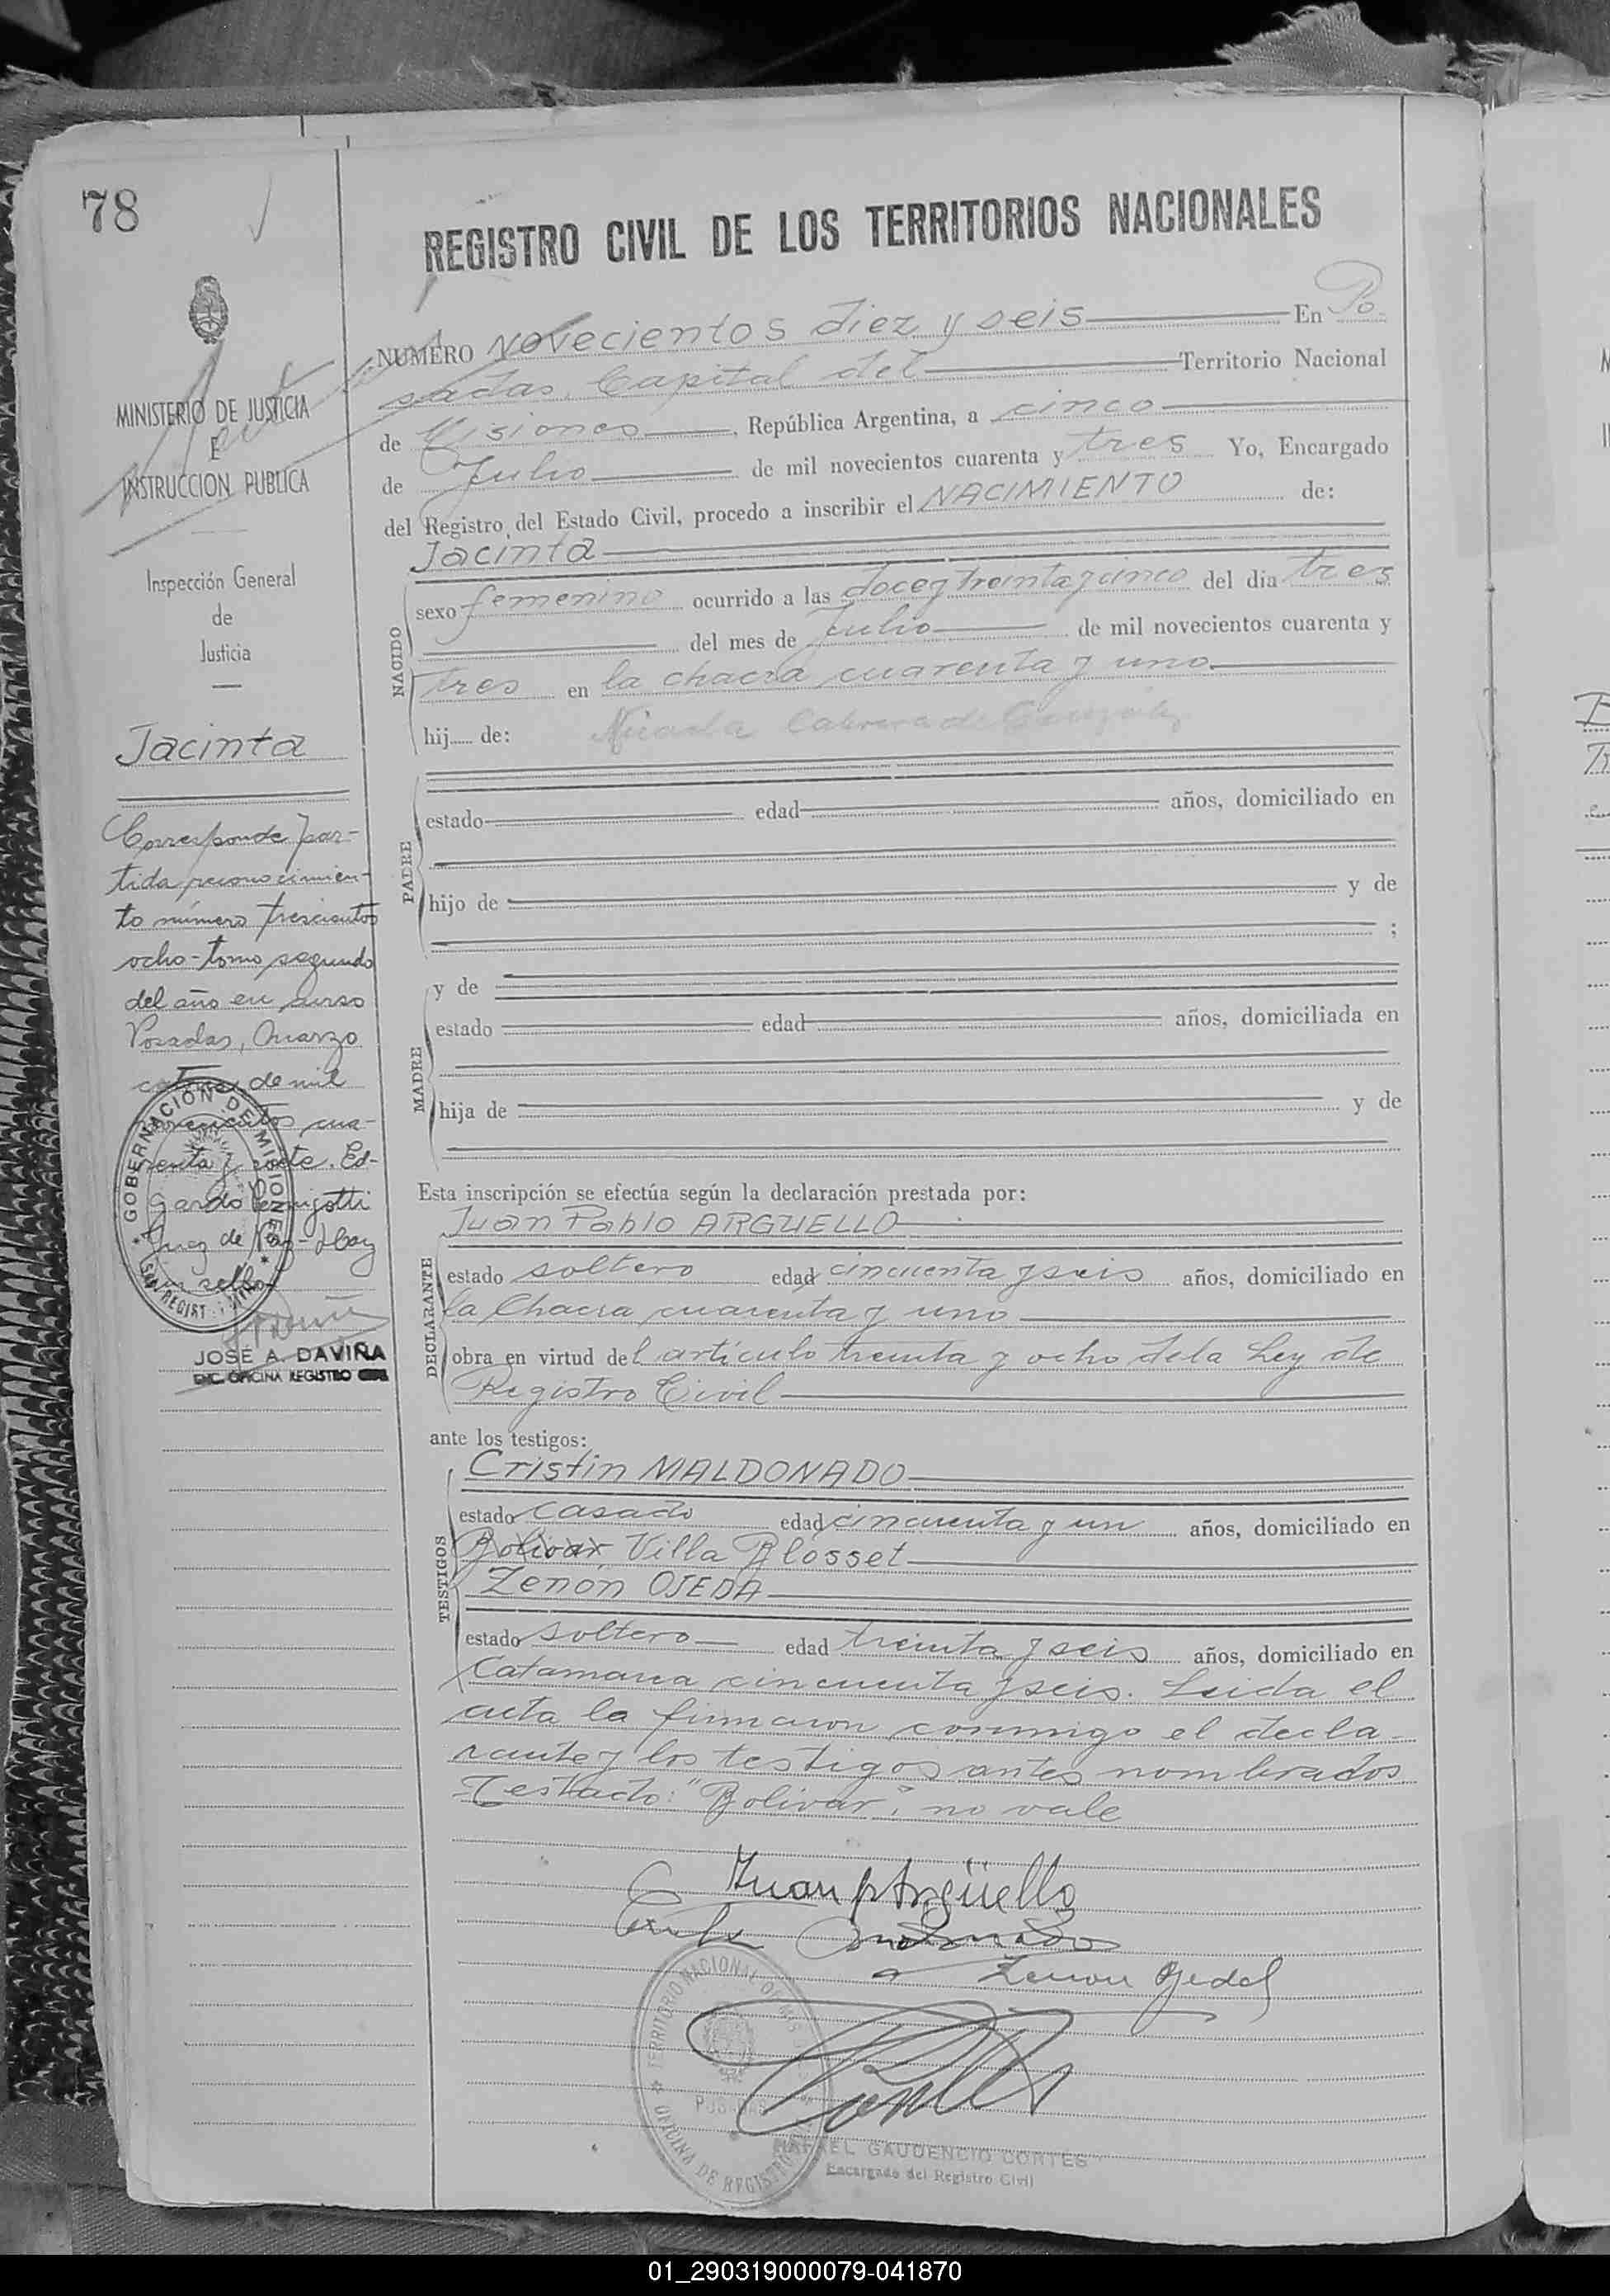 78
REGISTRO CIVIL DE LOS TERRITORIOS NACIONALES
NUMERO Novecientos diez y seis En Po
sadas, Capital del Territorio Nacional
de Misiones, República Argentina, a cinco
de Julio de mil novecientos cuarenta y tres Yo, Encargado
del Registro del Estado Civil, procedo a inscribir el NACIMIENTO de:
Jacinta
NACIDO
sexo femenino ocurrido a las doce y treinta y cinco del día tres
del mes de Julio de mil novecientos cuarenta y
tres en la chacra cuarenta y uno
hij..... de: Cabrera de
PADRE
estado edad años, domiciliado en
hijo de y de
;
MADRE
y de
estado edad años, domiciliada en
hija de y de
Esta inscripción se efectúa según la declaración prestada por:
DECLARANTE
Juan Pablo ARGUELLO
estado soltero edad cincuenta y seis años, domiciliado en
la Chacra cuarenta y uno
obra en virtud del artículo treinta y ocho de la Ley de
Registro Civil
ante los testigos:
TESTIGOS
Cristin MALDONADO
estado casado edad cincuenta y un años, domiciliado en
Bolivar Villa Blosset
Zenón OJEDA
estado soltero edad treinta y seis años, domiciliado en
Catamarca cincuenta y seis. Leida el
acta la firmaron conmigo el decla-
rante y los testigos antes nombrados
Testado: "Bolivar", no vale
Juan P Argüello
Zenon Ojeda
TERRITORIO NACIONAL DE
POSADAS
OFICINA DE REGISTRO
RAFAEL GAUDENCIO CORTES
Encargado del Registro Civil
MINISTERIO DE JUSTICIA
E
INSTRUCCION PUBLICA
Inspección General
de
Justicia
Jacinta
Corresponde par-
tida reconocimien-
to número trescientos
ocho-tomo segundo
del año en curso
Posadas, Marzo
catorce de mil
novecientos cua-
renta y siete. Ed-
gardo
Juez de Paz-Hay
un sello-
GOBERNACIÓN DE MISIONES
JOSÉ A. DAVIÑA
ENC. OFICINA REGISTRO CIVIL
01_290319000079-041870